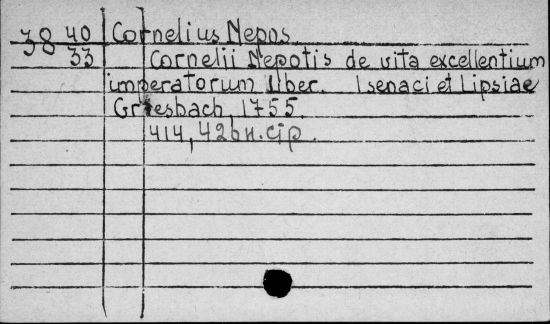 38 40 Cornelius Nepos.
33 Cornelii Nepotis de vita excellentium
imperatorum liber. Isenaci et Lipsiae
Griesbach, 1755.
414, 42 bн. cip.